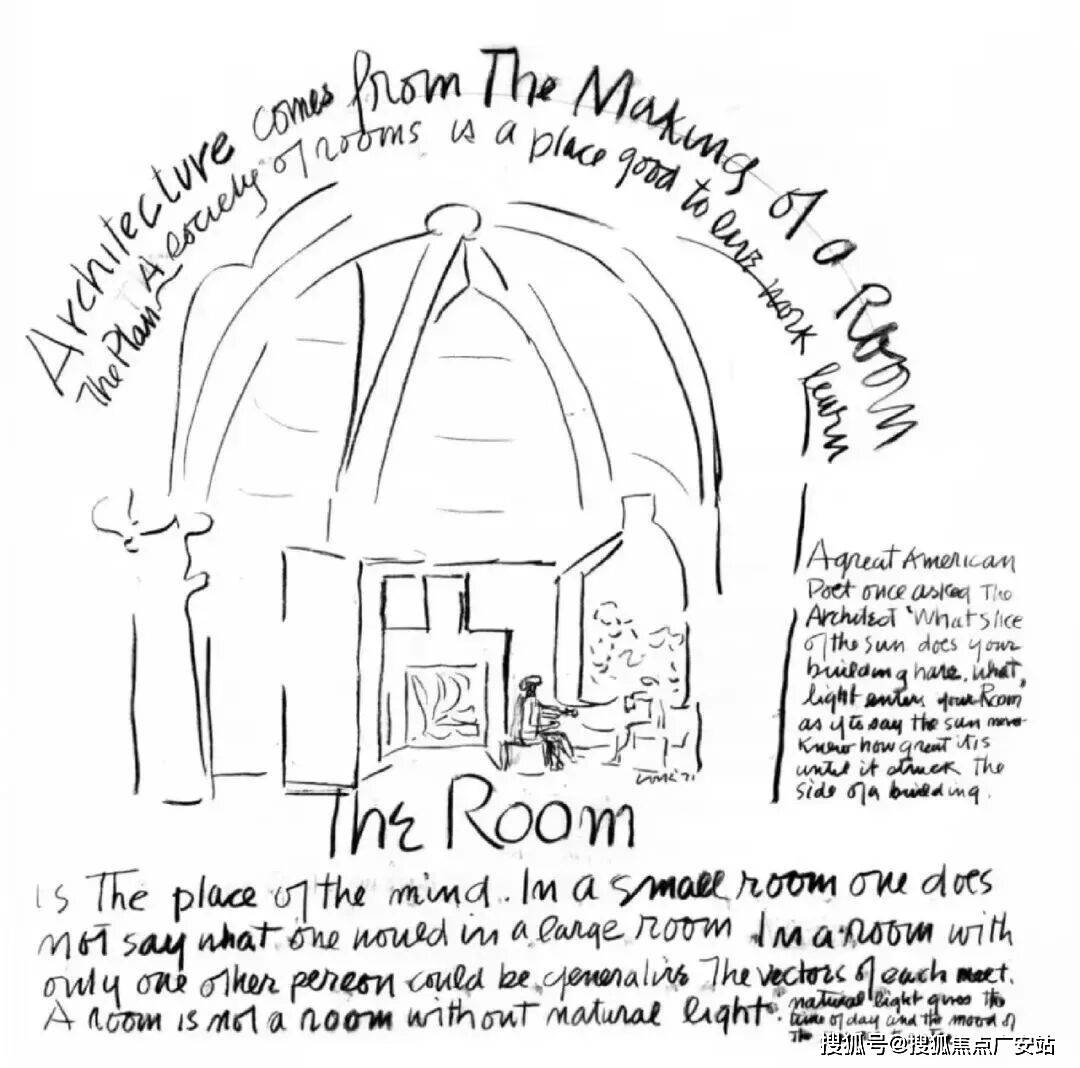 Architecture comes from The Making of a Room
The Plan A society of rooms is a place good to live work learn
A great American
Poet once asked The
Architect 'What slice
of the sun does your
building have, what
light enters your Room
as if to say the sun never
knew how great it is
until it struck The
side of a building.
The Room
is The place of the mind. In a small room one does
not say what one would in a large room In a room with
only one other person could be generative The vectors of each meet.
A room is not a room without natural light.
natural light gives the
time of day and the mood of
the
搜狐号@搜狐焦点广安站